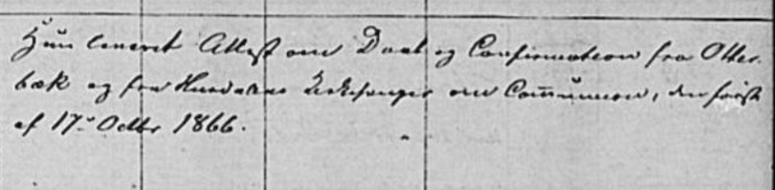 Hun leveret Attest om Daab og Confirmation fra Otter-
bæk og fra Hurdalens Kirkesanger om Communion, den første
af 17de Octbr 1866.